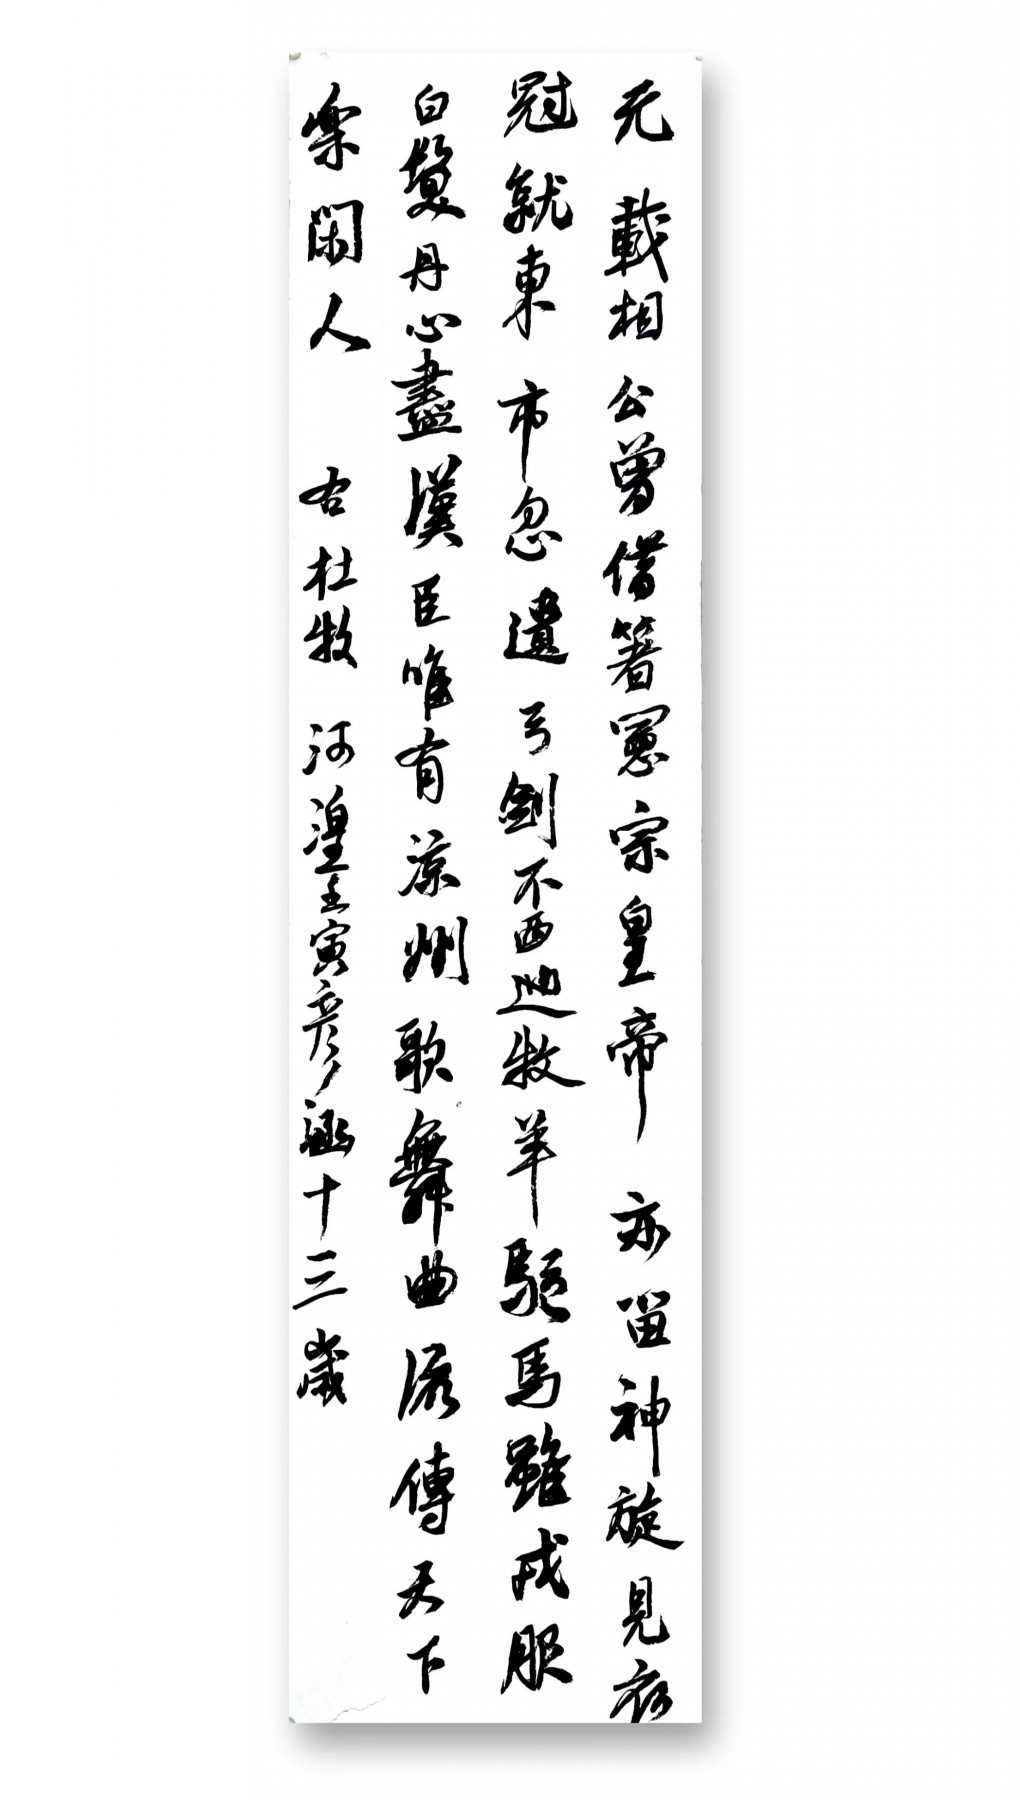 元載相公曾借箸憲宗皇帝亦留神旋見衣
冠就東市忽遺弓劍不西巡牧羊驅馬雖戎服
白髮丹心盡漢臣唯有涼州歌舞曲流傳天下
樂閑人 右杜牧河湟壬寅彥涵十三歲